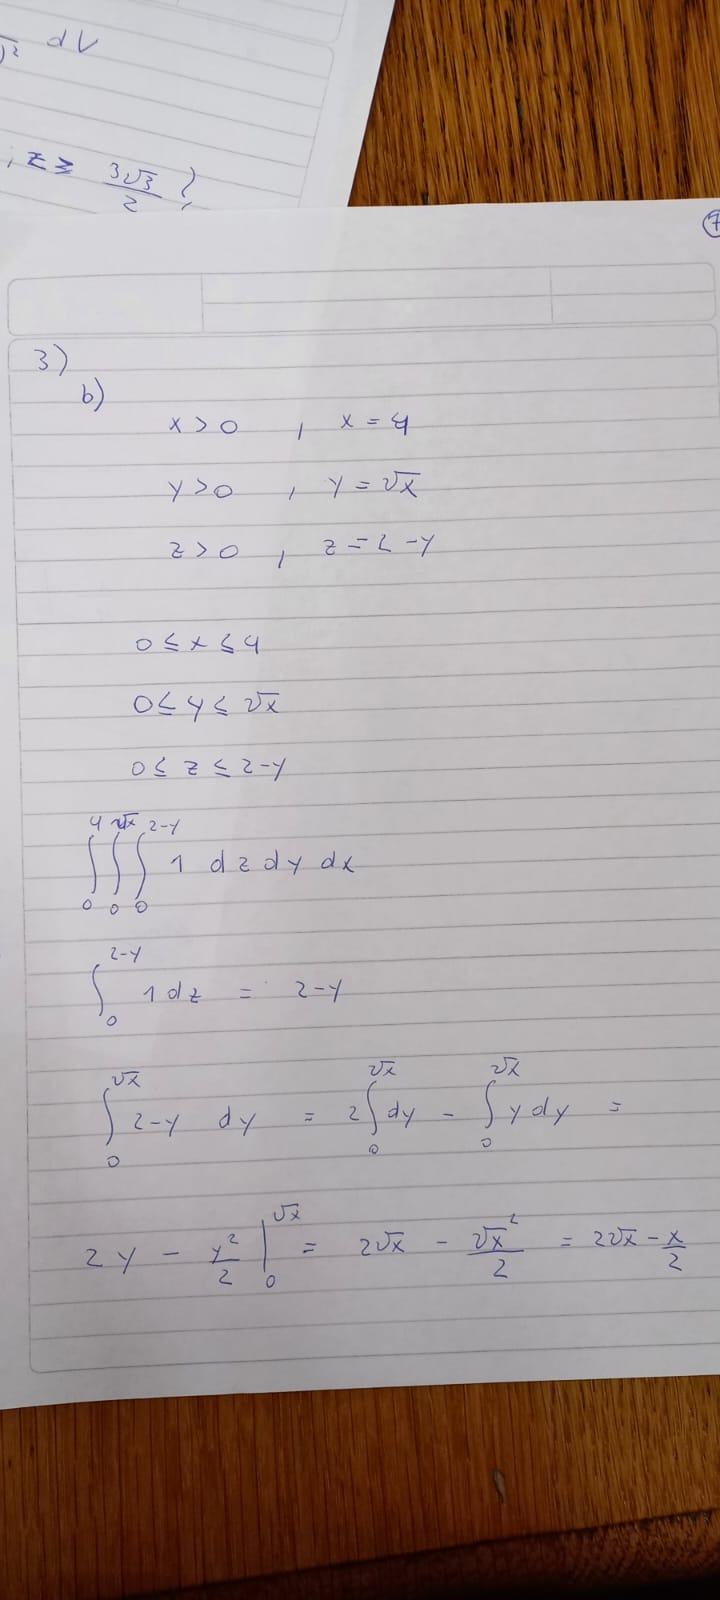 √2 dV
; z ≥ 3√3/2 }
7
3)
b)
x > 0 , x = 4
y > 0 , y = √x
z > 0 , z = 2 - y
0 ≤ x ≤ 4
0 ≤ y ≤ √x
0 ≤ z ≤ 2-y
∫₀⁴ ∫₀^√x ∫₀^(2-y) 1 dz dy dx
∫₀^(2-y) 1 dz = 2-y
∫₀^√x 2-y dy = 2∫₀^√x dy - ∫₀^√x y dy =
2y - y²/2 |₀^√x = 2√x - √x²/2 = 2√x - x/2